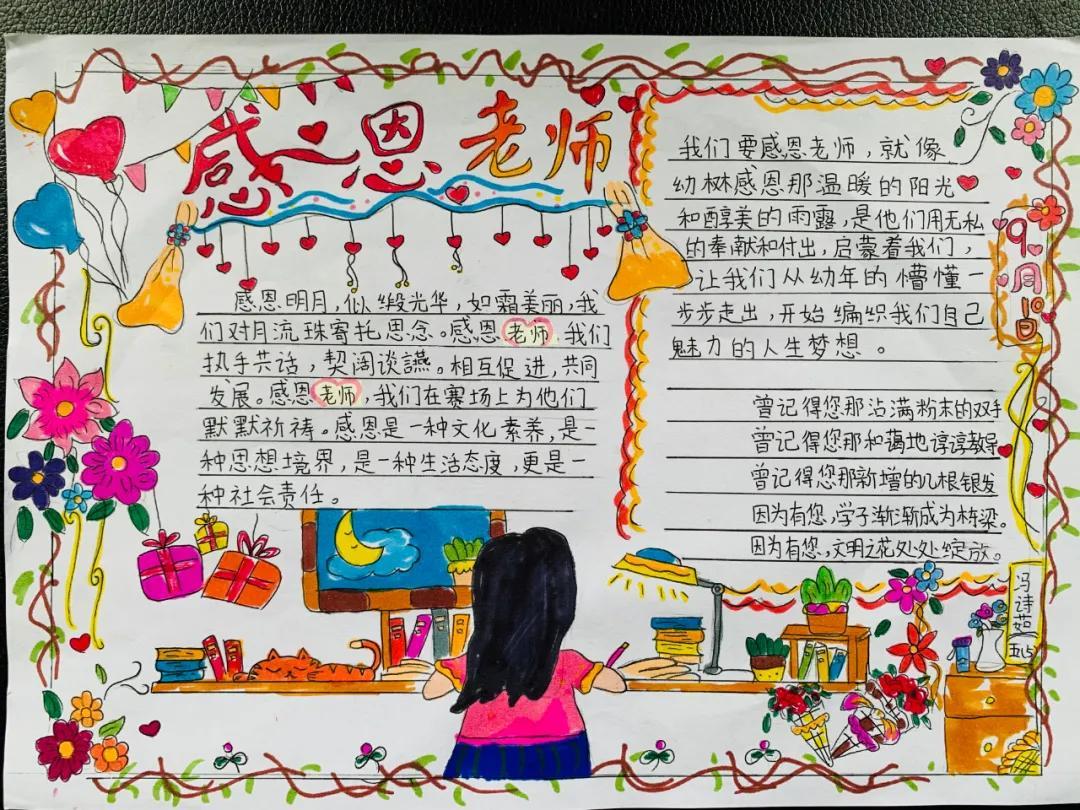 感恩老师
感恩明月，似缎光华，如霜美丽，我
们对月流珠寄托思念。感恩老师，我们
执手共话，契阔谈讌。相互促进，共同
发展。感恩老师，我们在赛场上为他们
默默祈祷。感恩是一种文化素养，是一
种思想境界，是一种生活态度，更是一
种社会责任。
我们要感恩老师，就像
幼林感恩那温暖的阳光
和醇美的雨露，是他们用无私
的奉献和付出，启蒙着我们，
让我们从幼年的懵懂一
步步走出，开始编织我们自己
魅力的人生梦想。
曾记得您那沾满粉末的双手
曾记得您那和蔼地谆谆教导
曾记得您那新增的几根银发
因为有您，学子渐渐成为栋梁。
因为有您，文明之花处处绽放。
9月10日
冯诗茹
五(5)